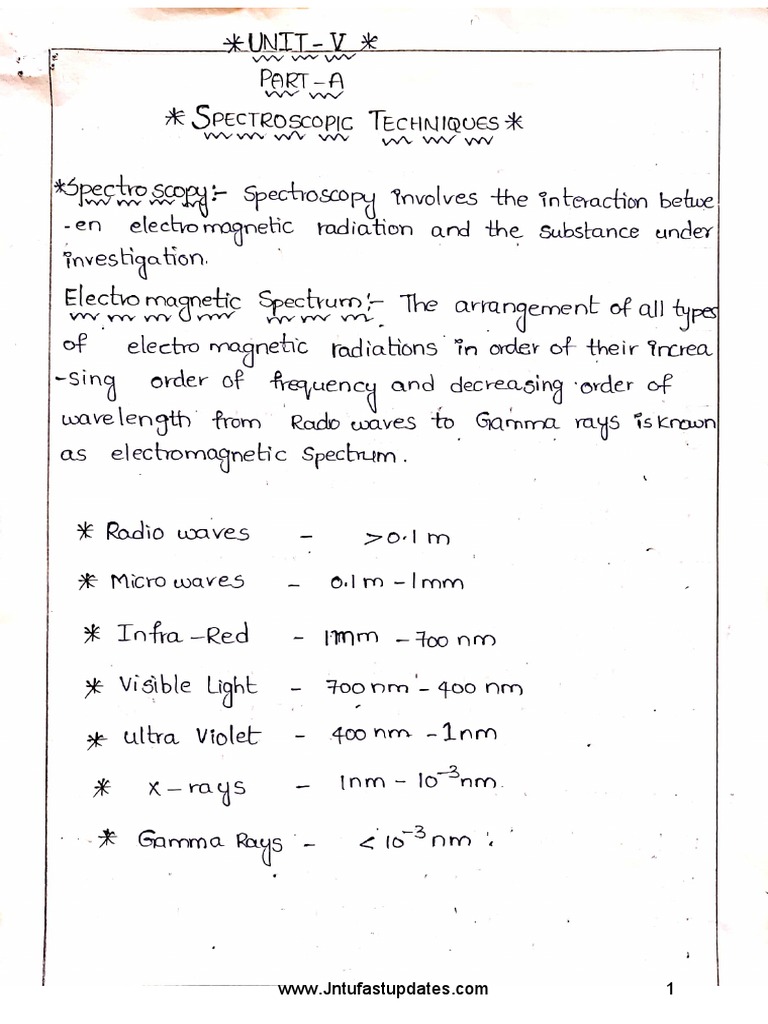 *UNIT-V *
PART-A
* SPECTROSCOPIC TECHNIQUES *
*Spectroscopy:- Spectroscopy involves the interaction betwe
-en electromagnetic radiation and the substance under
investigation.
Electro magnetic Spectrum:- The arrangement of all types
of electro magnetic radiations in order of their increa
-sing order of frequency and decreasing order of
wavelength from Rado waves to Gamma rays is known
as electromagnetic spectrum.
* Radio waves - >0.1 m
* Micro waves - 0.1m - 1mm
* Infra-Red - 1mm - 700 nm
* Visible Light - 700 nm - 400 nm
* ultra Violet - 400 nm - 1nm
* x-rays - 1nm - 10⁻³nm
* Gamma Rays - < 10⁻³ nm .
www.Jntufastupdates.com 1